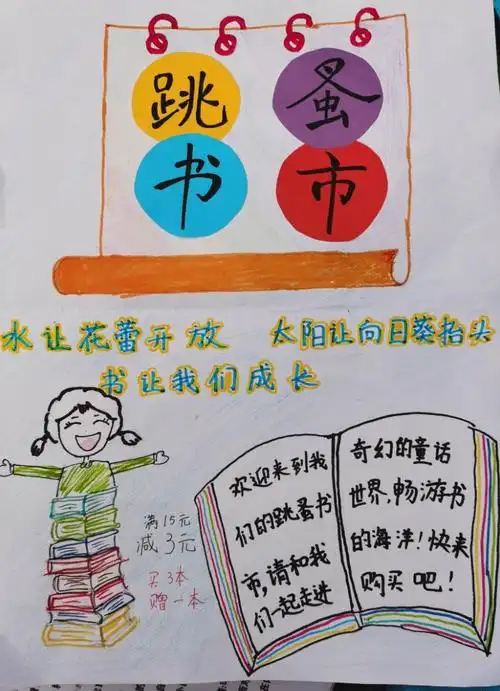 跳 蚤
书 市
水让花蕾开放 太阳让向日葵抬头
书让我们成长
满15元
减3元
买3本
赠一本
欢迎来到我
们的跳蚤书
市,请和我
们一起走进
奇幻的童话
世界,畅游书
的海洋!快来
购买吧!